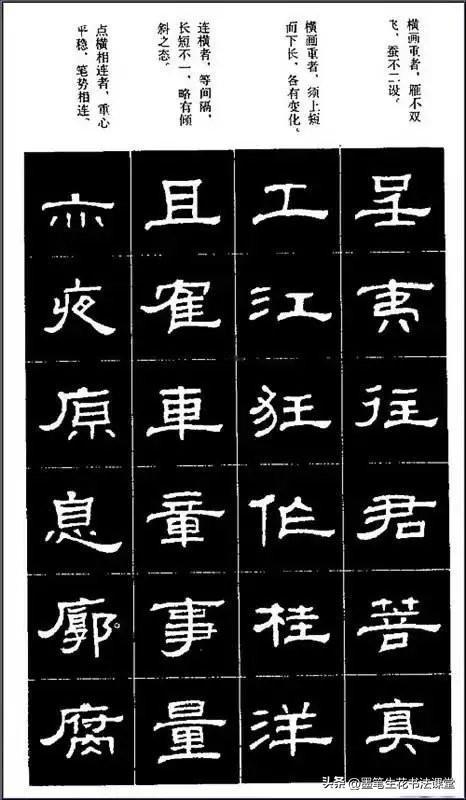 横画重者，雁不双
飞，蚕不二设。
横画重者，须上短
而下长，各有变化。
连横者，等间隔，
长短不一，略有倾
斜之态。
点横相连者，重心
平稳，笔势相连。
呈夷往君菩真
工江狂作桂洋
且寉車章事量
亦夜原息廓腐
头条 @墨笔生花书法课堂